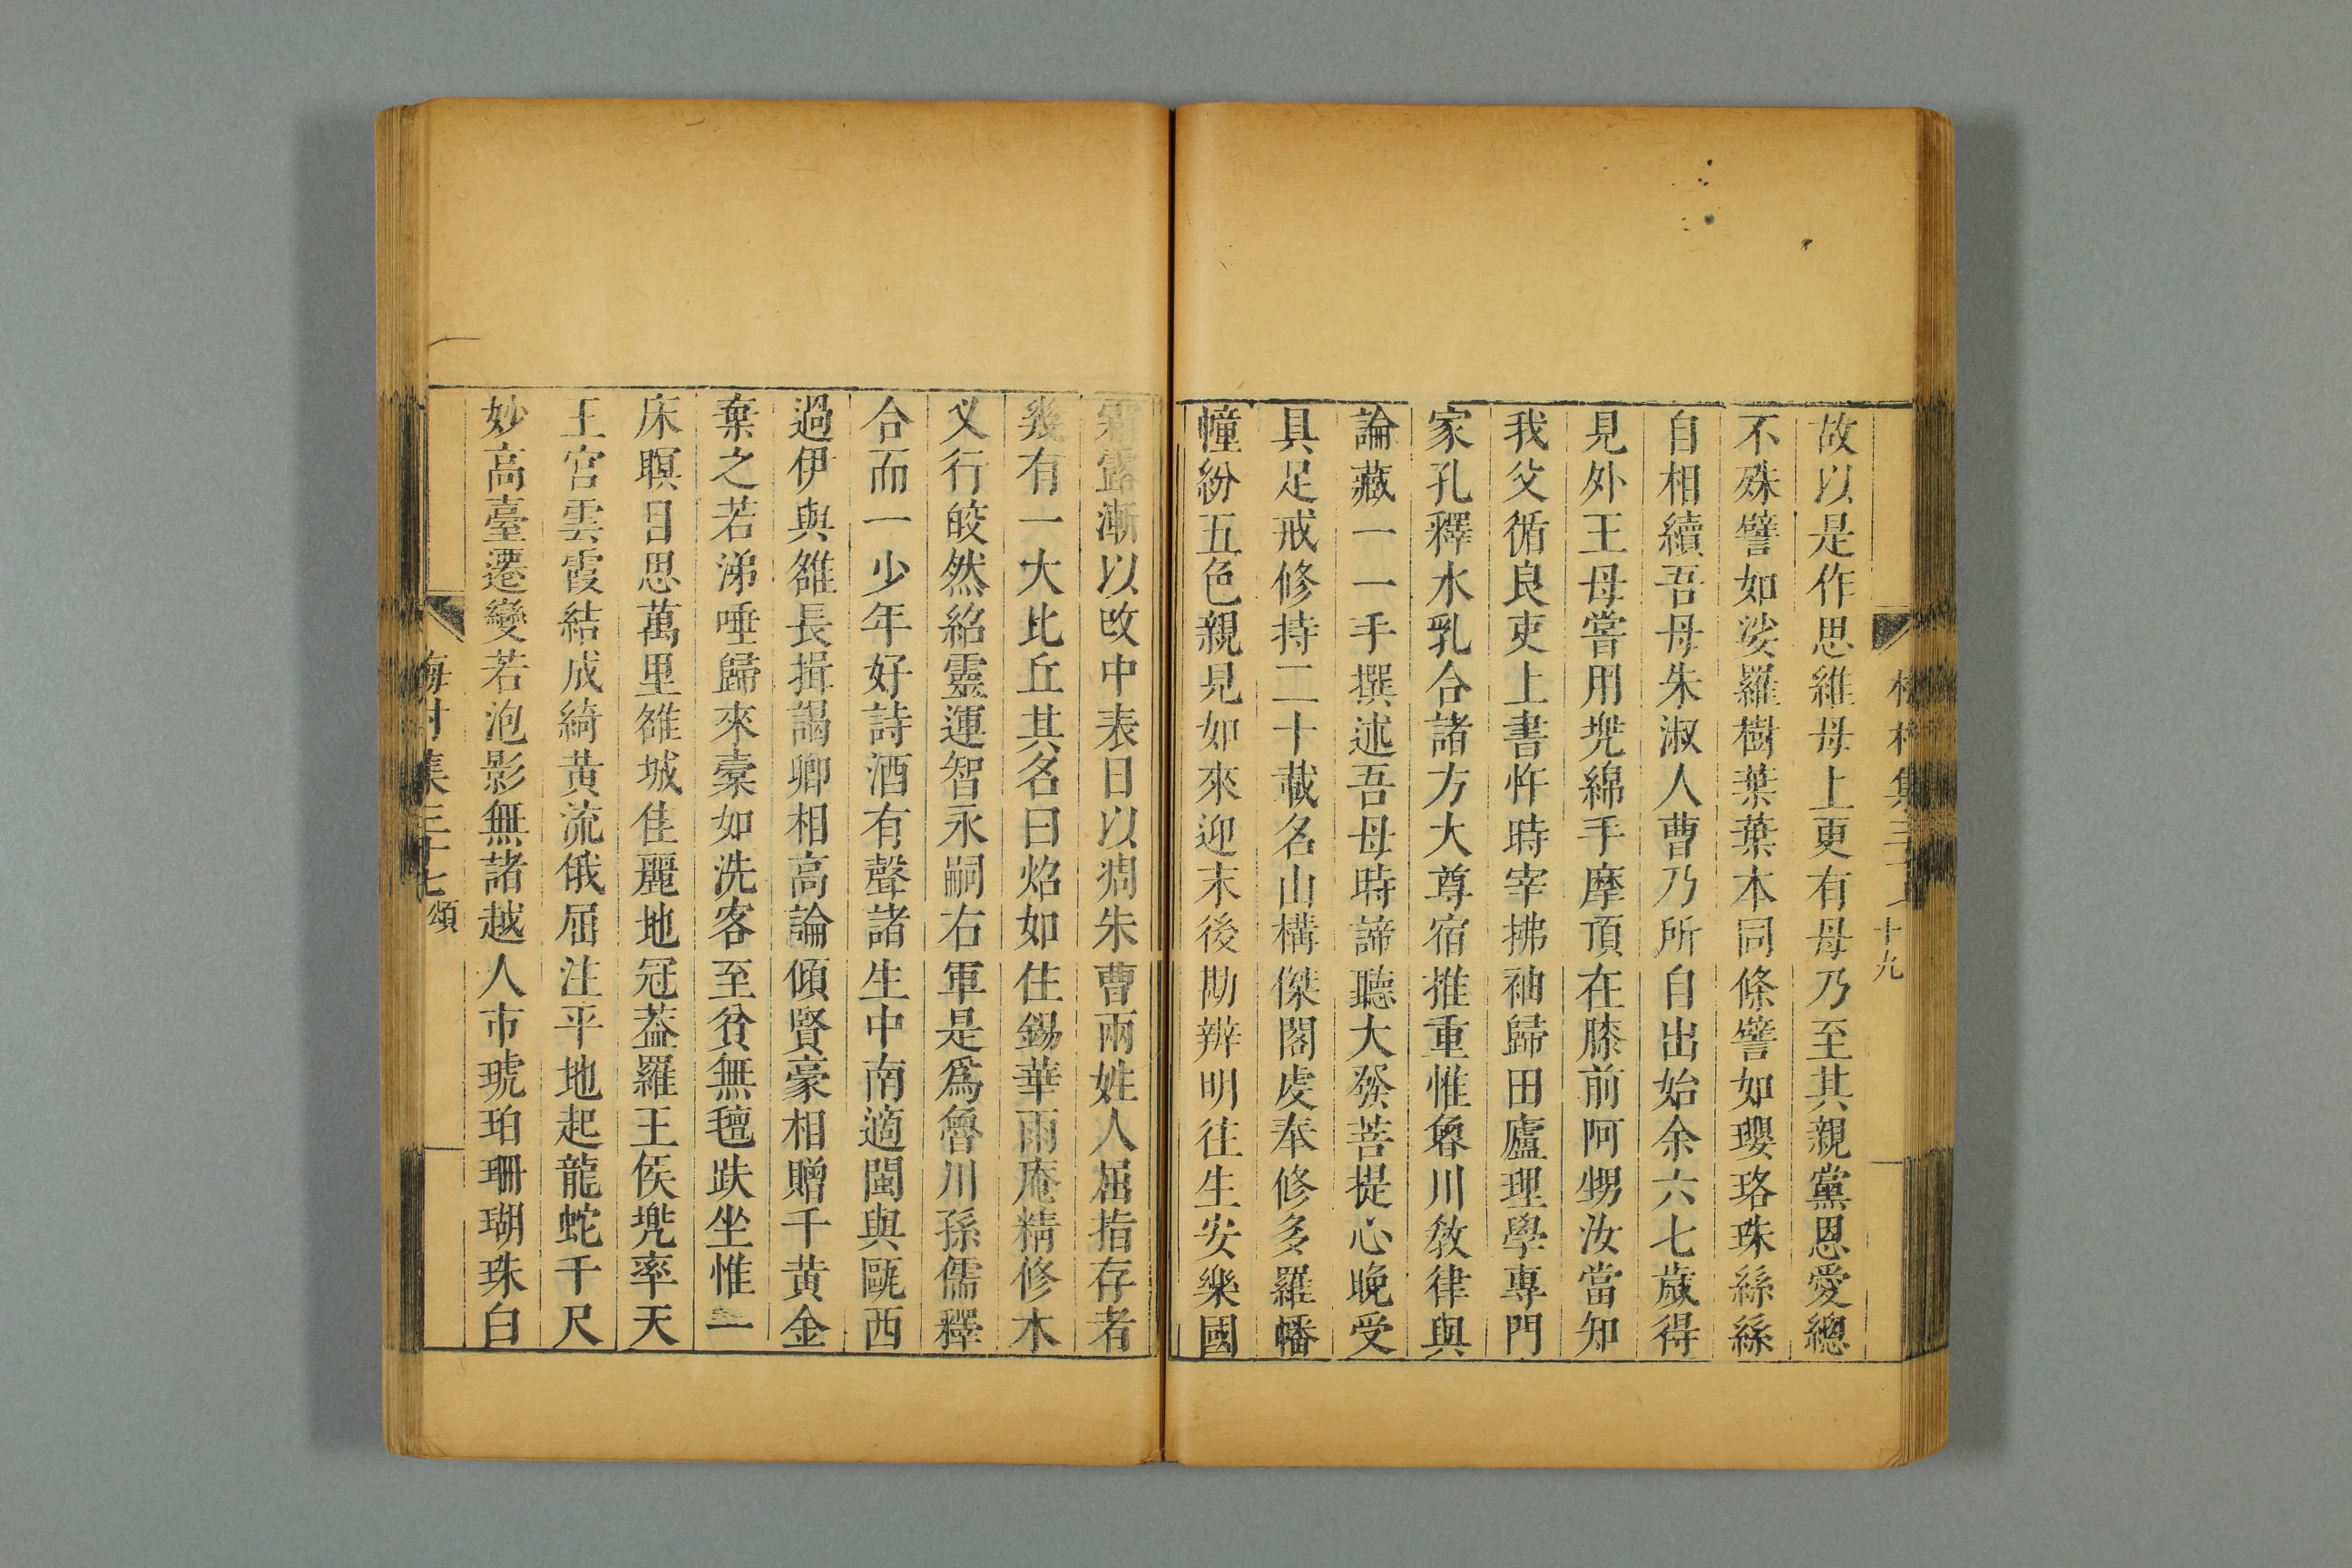 故以是作思維母上更有母乃至其親黨恩愛總
不殊譬如娑羅樹葉葉本同條譬如瓔珞珠絲絲
自相續吾母朱淑人曹乃所自出始余六七歲得
見外王母嘗用兜綿手摩頂在膝前阿甥汝當知
我父循良吏上書忤時宰拂袖歸田廬理學專門
家孔釋水乳合諸方大尊宿推重惟魯川教律與
論藏一一手撰述吾母時諦聽大發菩提心晚受
具足戒修持二十載名山構傑閣虔奉修多羅幡
幢紛五色親見如來迎末後勘辨明往生安樂國
霜露漸以改中表日以凋朱曹兩姓人屈指存者
幾有一大比丘其名曰焰如住錫華雨庵精修木
叉行皎然紹靈運智永嗣右軍是爲魯川孫儒釋
合而一少年好詩酒有聲諸生中南適閩與甌西
過伊與雒長揖謁卿相高論傾賢豪相贈千黄金
棄之若涕唾歸來橐如洗客至貧無氊趺坐惟一
床瞑目思萬里雒城佳麗地冠葢羅王侯兜率天
王宮雲霞結成綺黄流俄屈注平地起龍蛇千尺
妙高臺遷變若泡影無諸越人市琥珀珊瑚珠白
梅村集三十七 頌
十九